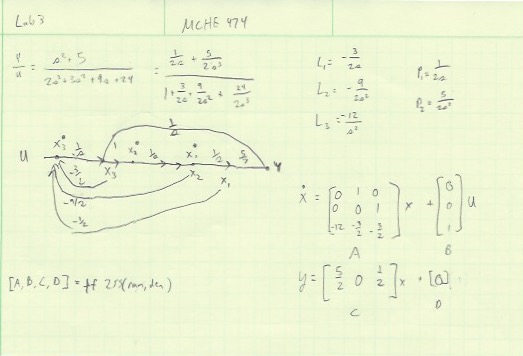 Lab 3
MCHE 474
y/u = (s²+5)/(2s³+3s²+9s+24) = (1/2s + 5/2s³)/(1+3/2s+9/2s²+24/2s³)
L₁ = -3/2s
L₂ = -9/2s²
L₃ = -12/s²
P₁ = 1/2s
P₂ = 5/2s³
1/2
U ẋ₃ 1/s 1 ẋ₂ 1/s ẋ₁ 1/s 5/2 y
x₃ x₂ x₁
-3/2
-9/2
ẋ = [0 1 0; 0 0 1; -12 -9/2 -3/2] x + [0; 0; 1] u
A B
y = [5/2 0 1/2] x + [0]
C D
[A,B,C,D] = tf 2SS(num,den)